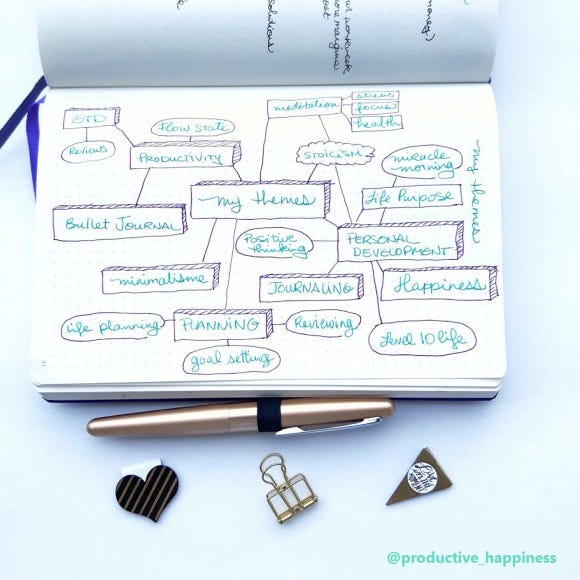 GTD
Reviews
Flow State
PRODUCTIVITY
meditation
stress
focus
health
STOICISM
miracle
morning
my themes
Life Purpose
my themes
Bullet JOURNAL
Positive
thinking
PERSONAL
DEVELOPMENT
minimalisme
JOURNALING
Happiness
life planning
PLANNING
Reviewing
goal setting
Level 10 life
@productive_happiness